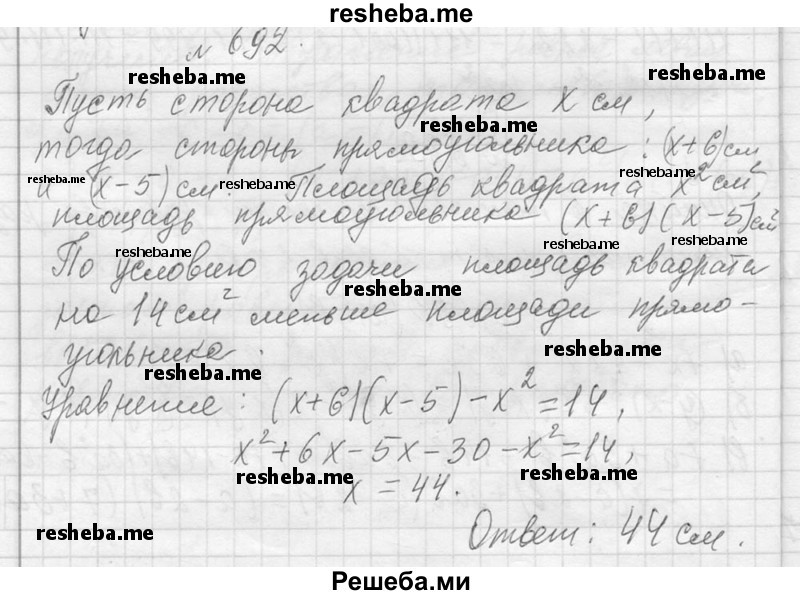 resheba.me
№ 692.
resheba.me resheba.me
Пусть сторона квадрата x см,
resheba.me
тогда стороны прямоугольника: (x+6)см
resheba.me resheba.me
и (x-5)см. Площадь квадрата x² см²,
площадь прямоугольника (x+6)(x-5)см²
resheba.me resheba.me resheba.me
По условию задачи площадь квадрата
resheba.me
на 14 см² меньше площади прямо-
угольника.
resheba.me
resheba.me
Уравнение: (x+6)(x-5)-x²=14,
x²+6x-5x-30-x²=14,
resheba.me resheba.me
x = 44.
resheba.me
Ответ: 44 см.
Решеба.ми